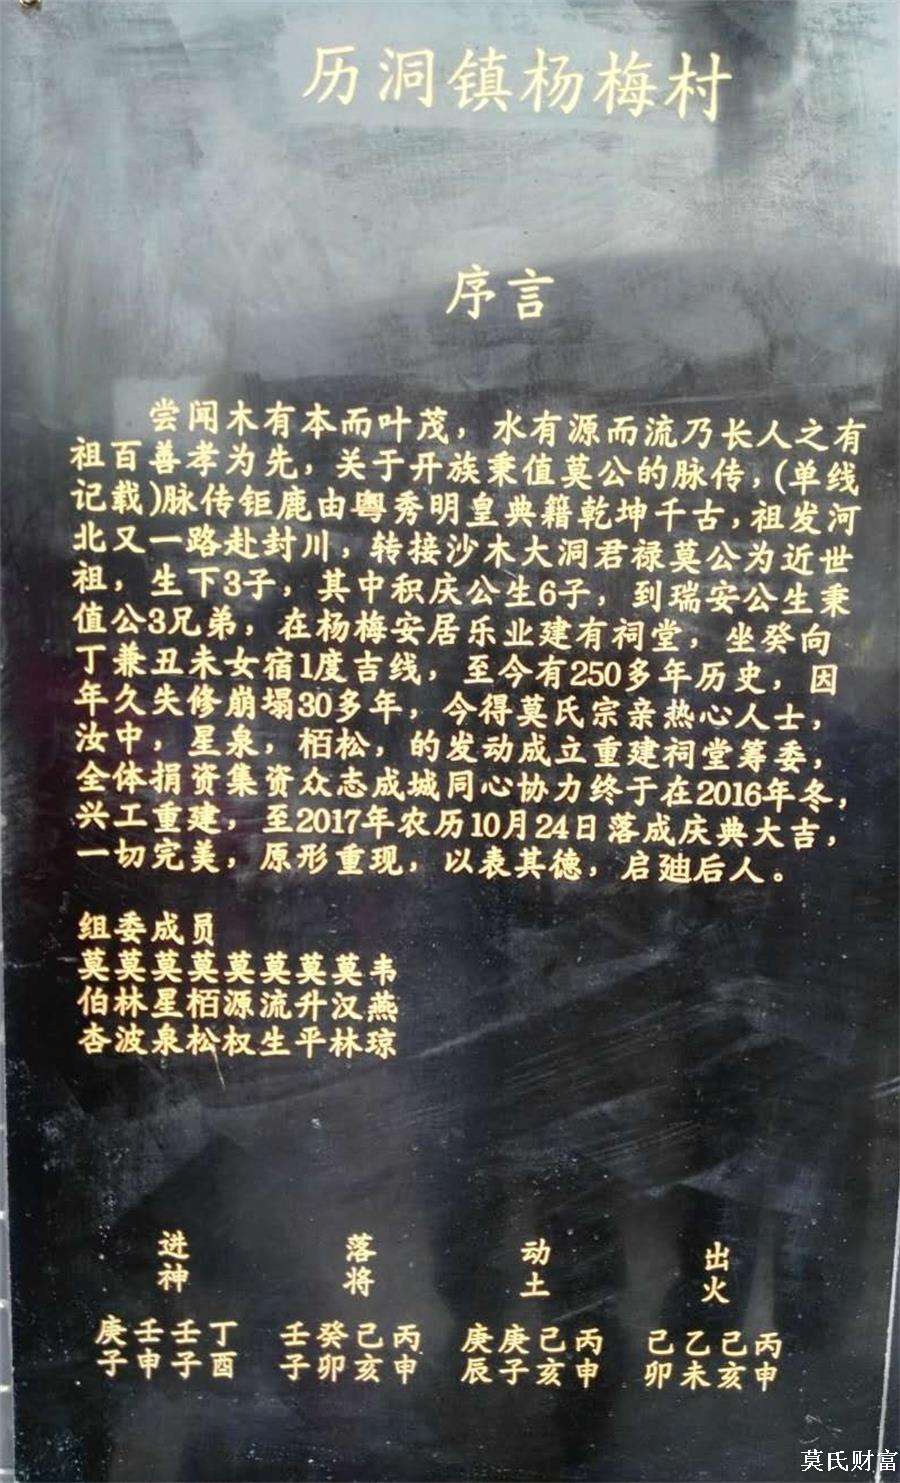 历洞镇杨梅村
序言
尝闻木有本而叶茂，水有源而流乃长人之有
祖百善孝为先，关于开族秉值莫公的脉传，(单线
记载)脉传钜鹿由粤秀明皇典籍乾坤千古，祖发河
北又一路赴封川，转接沙木大洞君禄莫公为近世
祖，生下3子，其中积庆公生6子，到瑞安公生秉
值公3兄弟，在杨梅安居乐业建有祠堂，坐癸向
丁兼丑未女宿1度吉线，至今有250多年历史，因
年久失修崩塌30多年，今得莫氏宗亲热心人士，
汝中，星泉，栢松，的发动成立重建祠堂筹委，
全体捐资集资众志成城同心协力终于在2016年冬，
兴工重建，至2017年农历10月24日落成庆典大吉，
一切完美，原形重现，以表其德，启廸后人。
组委成员
莫莫莫莫莫莫莫莫韦
伯林星栢源流升汉燕
杏波泉松权生平林琼
进 落 动 出
神 将 土 火
庚壬壬丁 壬癸己丙 庚庚己丙 己乙己丙
子申子酉 子卯亥申 辰子亥申 卯未亥申
莫氏财富